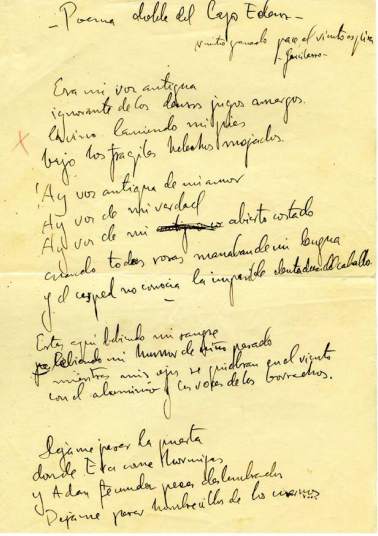 - Poema doble del Lago Edem -
nuestro ganado pace el viento espira
- Garcilaso -
Era mi voz antigua
ignorante de los densos jugos amargos
la que vino lamiendo mis pies
bajo los fragiles helechos mojados.
¡Ay voz antigua de mi amor
Ay voz de mi verdad
Ay voz de mi abierto costado
cuando todas las rosas manaban de mi lengua
y el cesped no conocia la impasible dentadura del caballo.
Estas aqui bebiendo mi sangre
bebiendo mi humor de niño pasado
mientras mis ojos se quiebran en el viento
con el aluminio y las voces de los borrachos.
Dejame pasar la puerta
donde Eva come hormigas
y Adan fecunda peces deslumbrados
Dejame pasar hombrecillo de los cuernos